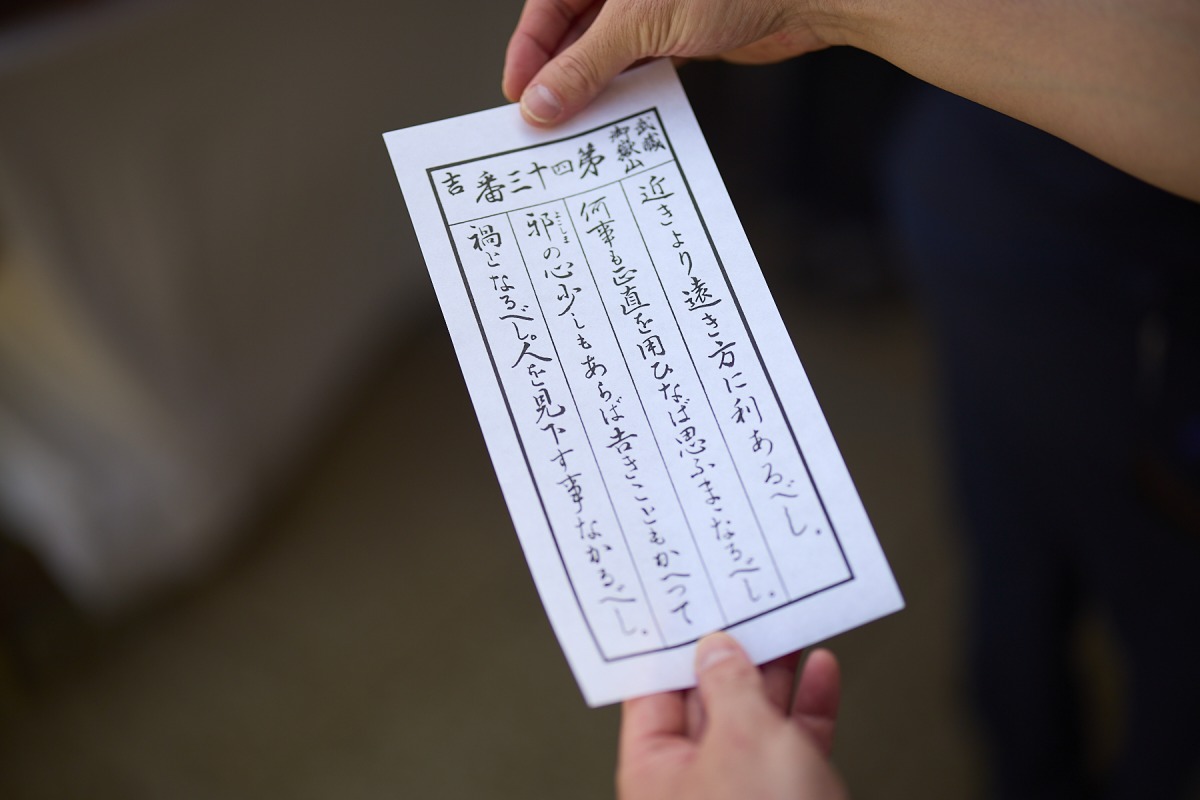 武蔵
御嶽山
第四十三番
吉
近きより遠き方に利あるべし。
何事も正直を用ひなば思ふまゝなるべし。
邪の心少しもあらば吉きこともかへつて
よこしま
禍となるべし。人を見下す事なかるべし。